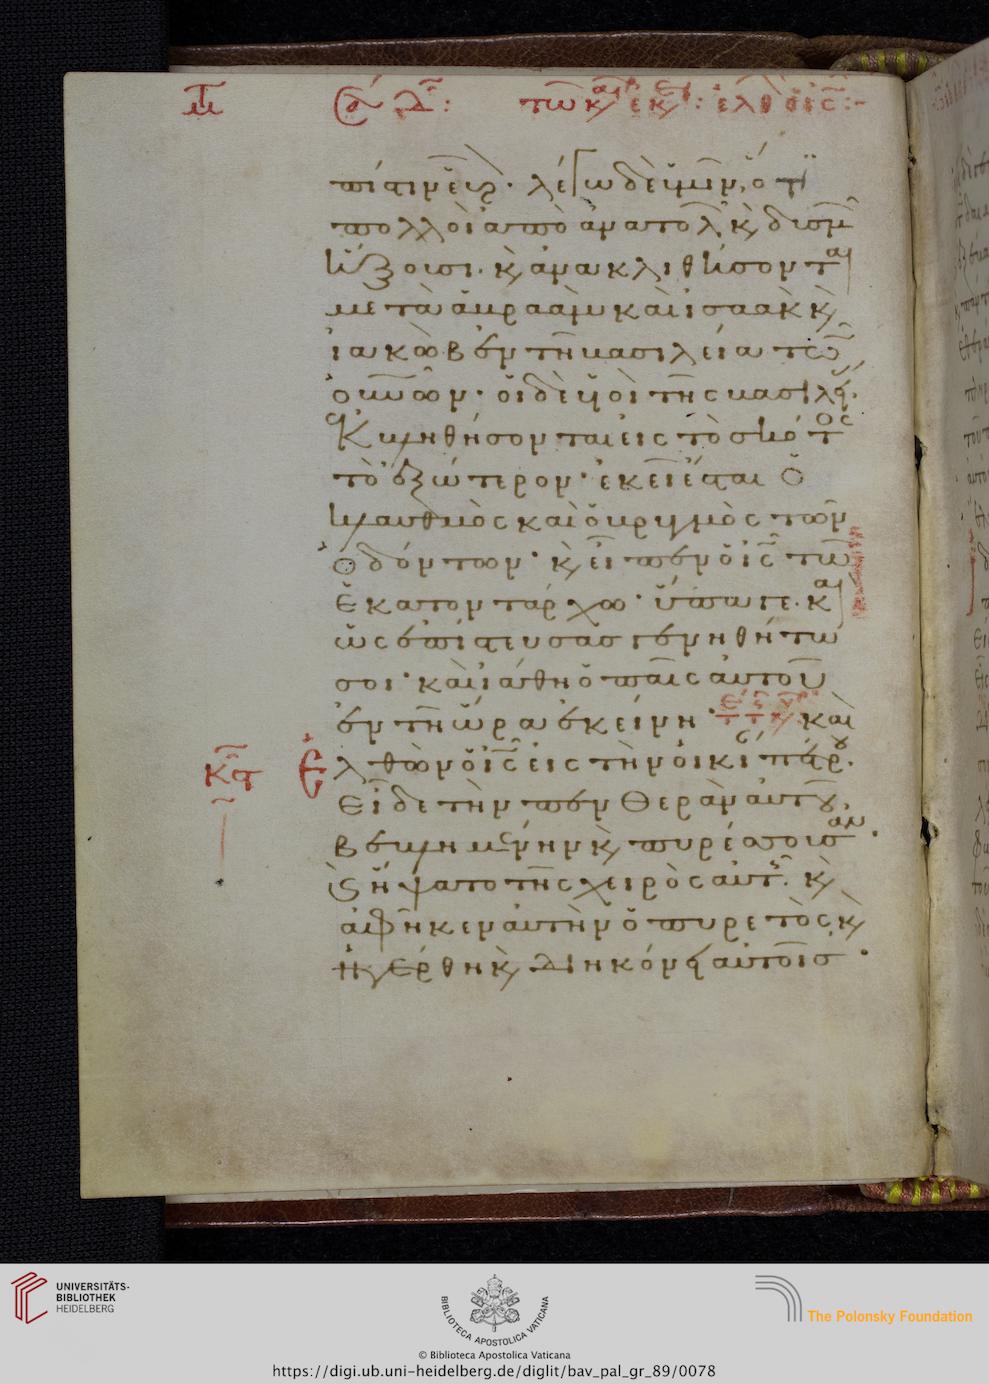 πίστιν εὗρ. λέγω δὲ ὑμῖν, ὅτι
πολλοὶ ἀπὸ ἀνατολ κ δυσμ
ἥξουσι. κ ἀνακλιθήσονται
μετὰ ἀβραὰμ καὶ ἰσαὰκ κ
ἰακὼβ ἐν τῆ βασιλεία τῶν
οὐνῶν· οἱ δὲ υἱοὶ τῆς βασιλεί.
ἐκβληθήσονται εἰς τὸ σκότος
τὸ ἐξώτερον· ἐκεῖ ἔσται ὁ
κλαυθμὸς καὶ ὁ βρυγμὸς τῶν
ὀδόντων· κ εἶπεν ὁ ις τῶ
ἑκατοντάρχω· ὕπαγε. καὶ
ὡς ἐπίστευσας γενηθήτω
σοι· καὶ ἰάθη ὁ παῖς αὐτοῦ
ἐν τῆ ὥρα ἐκείνη· καὶ
Ελθὼν ὁ ις εἰς τὴν οἰκί πέτρου.
Εἶδε τὴν πενθερὰν αὐτοῦ,
βεβλημένην κ πυρέσσουσαν.
κ ἥψατο τῆς χειρὸς αὐτ. κ
ἀφῆκεν αὐτὴν ὁ πυρετὸς, κ
ἠγέρθη κ διηκόνει αὐτοῖς.
UNIVERSITÄTS-
BIBLIOTHEK
HEIDELBERG
BIBLIOTECA APOSTOLICA VATICANA
The Polonsky Foundation
© Biblioteca Apostolica Vaticana
https://digi.ub.uni-heidelberg.de/diglit/bav_pal_gr_89/0078